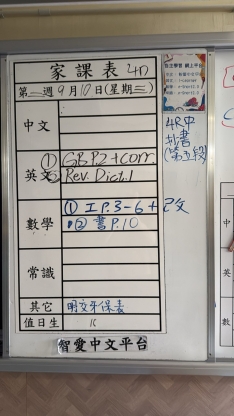 家課表 4D
第二週9月10日(星期三)
中文
英文
① GB.P.2+corr.
② Rev. Dict.1
數學
① 工P.3-6+改
② 書P.10
常識
其它
明交牙保表
值日生
智愛中文平台
4R中
抄書
(第五段)
中
英
數